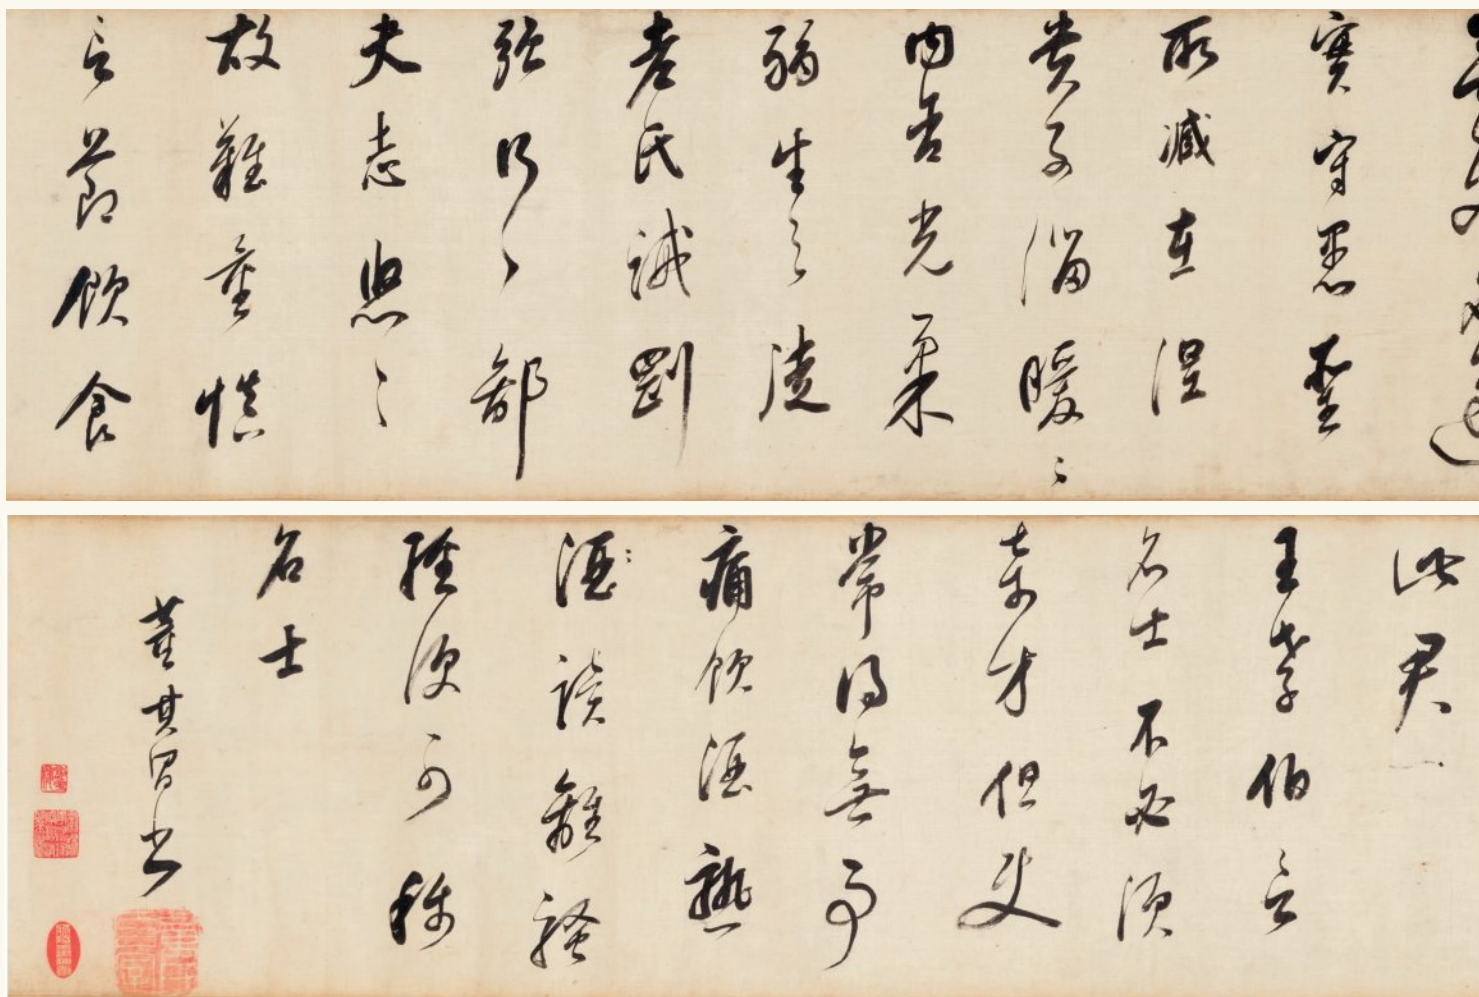 實守愚聖
所臧在涅
貴不淄暖〻
內含光柔
弱生之徒
老氏誡剛
強行〻鄙
夫志悠〻
故難量慎
言節飲食
此君
王孝伯言
名士不必須
奇才但使
常得無事
痛飲酒熟
酒讀離騷
經便可稱
名士
董其昌書